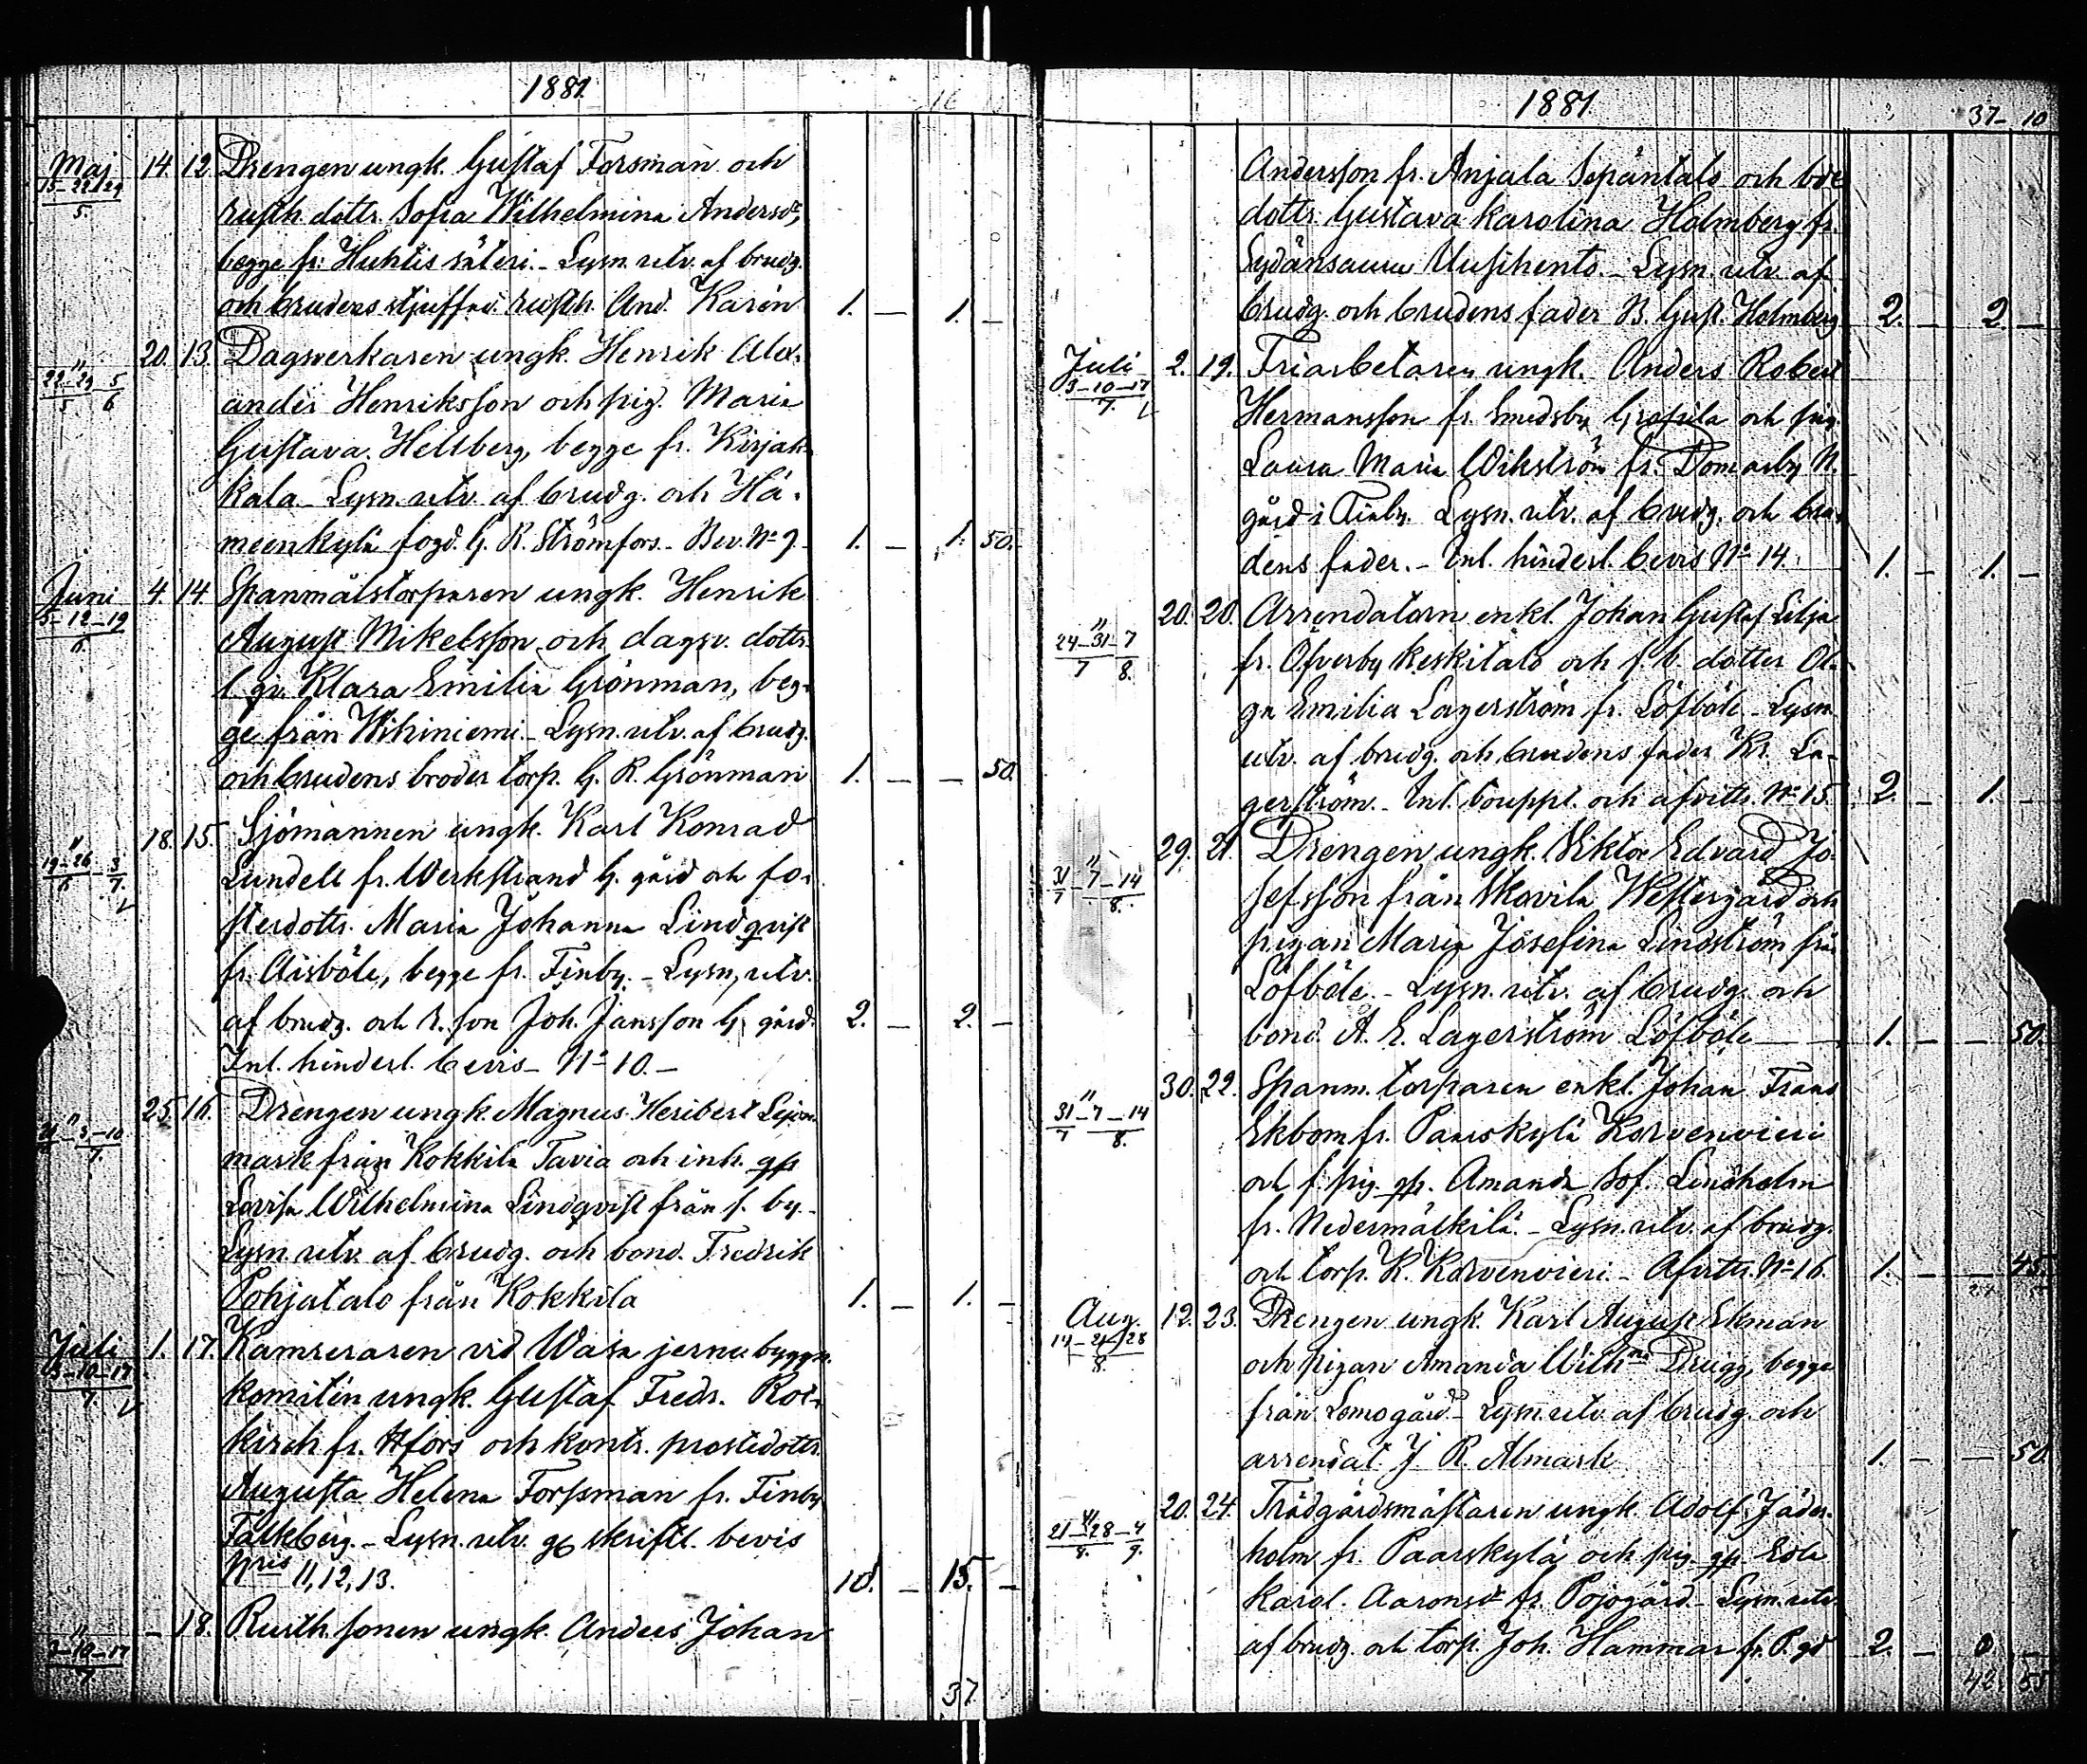 1881.
Maj 14. 12. Drengen ungk. Gustaf Forsman och
15-22-29/5. rusth. dottr. Sofia Wilhelmina Andersdr,
begge fr. Huhtis säteri. - Lysn. utv. af brudg.
och brudens stjuffad. rusth. And. Karén 1. — 1. —
" 20. 13. Dagsverkaren ungk. Henrik Alex-
22-29/5 - 5/6 ander Henriksson och pig. Maria
Gustava Helsberg, begge fr. Kirjak-
kala - Lysn. utv. af brudg. och Hä-
meenkylä fogd. G. R. Strömfors. - Bev. No 9. 1. — 1. 50.
Juni 4. 14. Spanmålstorparen ungk. Henrik
5-12-19/6. August Mikelsson och dagsv. dottr.
l. qv. Klara Emilia Grönman, beg-
ge från Wihiniemi. - Lysn. utv. af brudg.
och brudens broder torp. G. R. Grönman 1. — — 50.
" 18. 15. Sjömannen ungk. Karl Konrad
19-26/6 - 3/7. Lundell fr. Werkstrand G. gård och fo-
sterdottr. Maria Johanna Lindqvist
fr. Aisböle, begge fr. Finby. - Lysn. utv.
af brudg. och r. son Joh. Jansson G. gård. 2. — 2. —
Inl. hinderl. bevis - No 10. -
" 25. 16. Drengen ungk. Magnus Heribert Lejon-
3-10/7. mark från Kokkila Tavia och inh. qp
Lovisa Wilhelmina Lindqvist från s. by. -
Lysn. utv. af brudg. och bond. Fredrik
Pohjatalo från Kokkila 1. — 1. —
Juli 1. 17. Kamreraren vid Wasa jernv. byggn.
3-10-17/7. komitén ungk. Gustaf Fredr. Rot-
kirch fr. Hfors och kontr. prostedottr.
Augusta Helena Forssman fr. Finby
Falkberg. - Lysn. utv. gg skriftl. bevis
Nris 11, 12, 13. 10. — 15. —
" — 18. Rusth. sonen ungk. Anders Johan
3-10-17/7.
37.
1881
37- 10
Andersson fr. Anjala Sepäntalo och bde
dottr. Gustava Karolina Holmberg fr.
Sydänsauru Uusihento. - Lysn. utv. af
brudg. och brudens fader B. Gust. Holmberg 2. — 2. —
Juli 2. 19. Friarbetaren ungk. Anders Robert
3-10-17/7. Hermansson fr. Smedsby och pig.
Laura Maria Wikström fr. Domarby N.
gård i Finby. Lysn. utv. af brudg. och bru-
dens fader. - Inl. hinderl. bevis No 14. 1. — 1. —
" 20. 20. Arrendatorn enkl. Johan Gustaf Lilja
24-31/7 - 7/8. fr. Öfverby Keskitalo och f. b. dotter Ol-
ga Emilia Lagerström fr. Löfböle - Lysn.
utv. af brudg. och brudens fader Kr. La-
gerström. - Inl. bouppt. och afvittr. No 15. 2. — 1. —
" 29. 21. Drengen ungk. Viktor Edvard Jo-
31/7 - 7-14/8. sefsson från Skovila Westergård och
pigan Maria Josefina Lindström från
Löfböle. - Lysn. utv. af brudg. och
bond. A. E. Lagerström Löfböle — 1. — — 50.
" 30. 22. Spanm. torparen enkl. Johan Frans
31/7 - 7-14/8. Ekbom fr. Paarskylä Korvenvieri
och f. pig. qp. Amanda Sof. Lindholm
fr. Nedermälkilä. - Lysn. utv. af brudg.
och torp. K. Korvenvieri. - Afvittr. No 16. 1. — — 45.
Aug. 12. 23. Drengen ungk. Karl August Ekman
14-21-28/8. och pigan Amanda Wilhna Drugg, begge
från Lemogård - Lysn. utv. af brudg. och
arrendat. J. R. Almark 1. — — 50.
" 20. 24. Trädgårdsmästaren ungk. Adolf Jäder-
21-28/8. - 4/9. holm fr. Paarskylä och pig. qp. Eda
Karol. Aaronsdr fr. Pojogård - Lysn. utv.
af brudg. och torp. Joh. Hammar fr. P. gd 2. — 0 —
42. 55